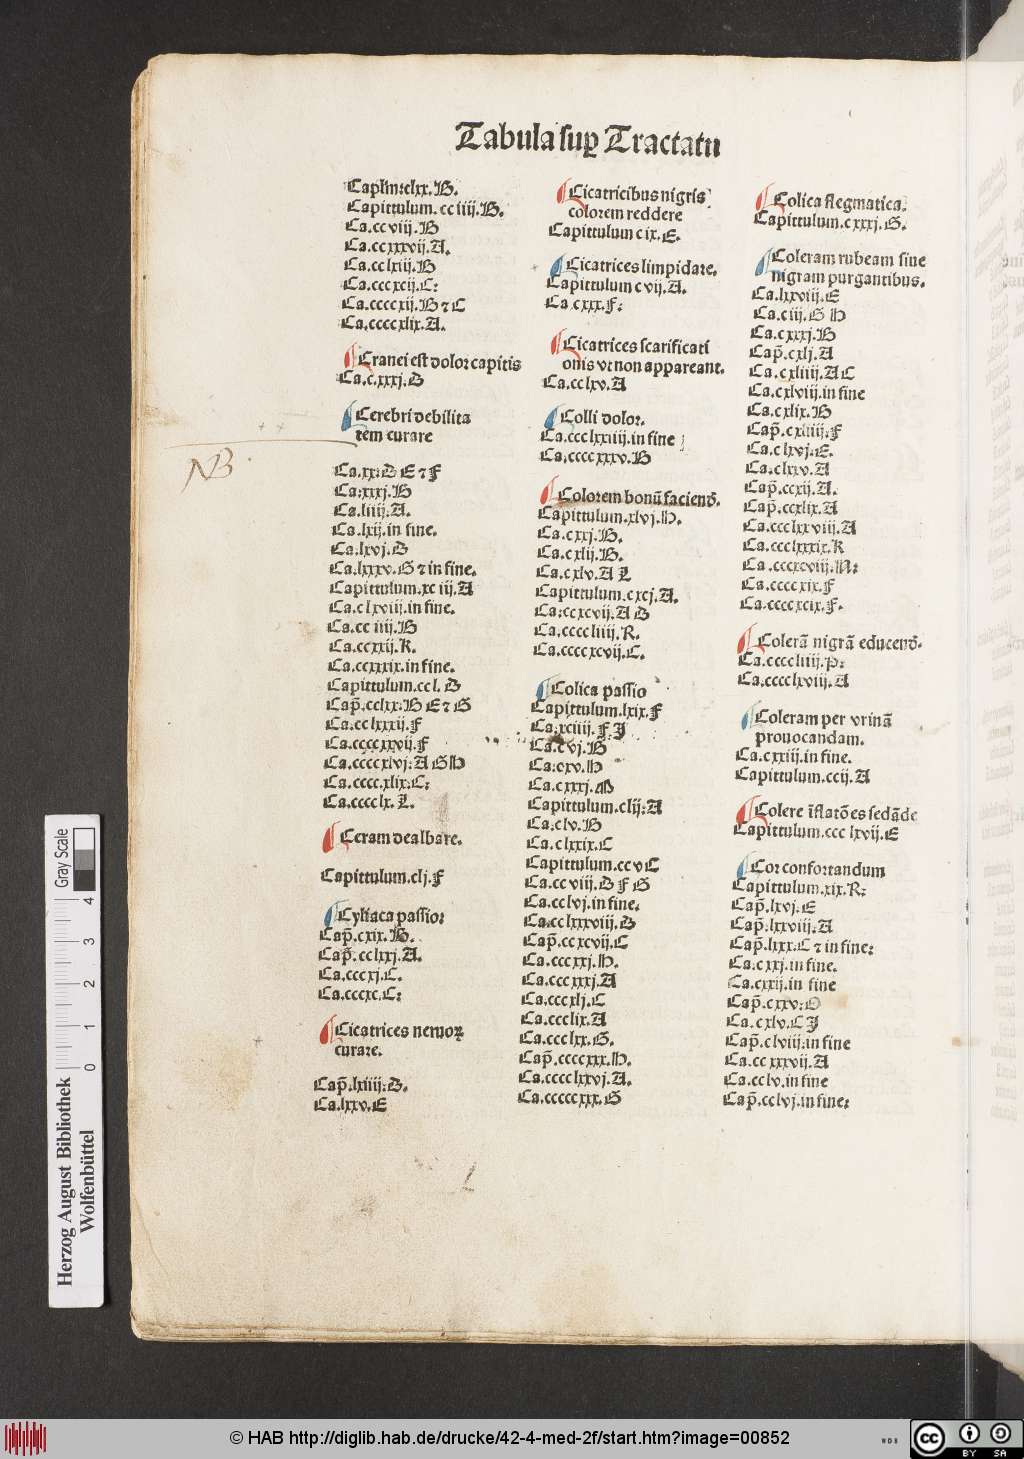 Tabula sup̱ Tractatu
Caplm̄.clxx.H.
Capittulum.cciiii.H.
Ca.ccviij.H
Ca.ccxxxvij.A.
Ca.cclxiij.H
Ca.cccxcij.C:
Ca.ccccxij.H⁊C
Ca.ccccxlix.A.
Cranei est dolor capitis
Ca.c.xxxj.D
Cerebri debilita
tem curare
NB
Ca.xx:D E⁊F
Ca:xxxj.H
Ca.liiij.A.
Ca.lxij.in fine.
Ca.lxvj.D
Ca.lxxxv.G⁊in fine.
Capittulum.xciij.A
Ca.clxviij.in fine.
Ca.cciiij.H
Ca.ccxxij.K.
Ca.ccxxxix.in fine.
Capittulum.ccl.D
Cap̄.cclxx:H E⁊G
Ca.cclxxxij.F
Ca.ccccxxvij.F
Ca.ccccxlvj:A G H
Ca.cccc.xlix:C:
Ca.cccclx.L.
Ceram dealbare.
Capittulum.clj.F
Cyliaca passio:
Cap̄.cxix.H.
Cap̄.cclxxj.A.
Ca.cccxj.C.
Ca.cccxc.C:
Cicatrices neruoꝝ
curare.
Cap̄.lxiiij:D.
Ca.lxxv.E
Cicatricibus nigris
colorem reddere
Capittulum cix.E.
Cicatrices limpidare.
Capittulum cvij.A.
Ca cxxx.F:
Cicatrices scarificati
onis vt non appareant.
Ca.cclxv.A
Colli dolor.
Ca.ccclxxiiij.in fine
Ca.ccccxxxv.H
Colorem bonū faciend̄.
Capittulum.xlvj.H.
Ca.cxxj.H.
Ca.cxlij.H.
Ca.cxlv.A L
Capittulum.cxcj.A.
Ca:ccxcvij.A D
Ca.ccccliiij.R.
Ca.ccccxcvij.C.
Colica passio
Capittulum.lxix.F
Ca.xciiij.F J
Ca.cvj.H
Ca.cxv.H
Ca.cxxxj.M
Capittulum.clij:A
Ca.clv.H
Ca.clxxix.C
Capittulum.ccv C
Ca.ccviij.D F G
Ca.cclvj.in fine.
Ca.cclxxxviij.D
Cap̄.ccxcvij.C
Ca.cccxxj.H.
Ca.cccxxxj.A
Ca.cccxlj.C
Ca.ccclix.A
Ca.ccclxx.G.
Cap̄.ccccxxx.H.
Ca.cccclxxvj.A.
Ca.cccccxxx.G
Colica flegmatica.
Capittulum.cxxxj.G.
Coleram rubeam siue
nigram purgantibus.
Ca.lxxviij.E
Ca.ciij.G H
Ca.cxxxj.H
Cap̄.cxlj.A
Ca.cxliiij.A C
Ca.cxlviij.in fine
Ca.cxlix.H
Cap̄.cxliiij.F
Ca.clxvj.E.
Ca.clxxv.A
Cap̄.ccxij.A.
Cap̄.ccxlix.A
Ca.ccclxxviij.A
Ca.ccclxxxix.K
Ca.cccxcviij.N:
Ca.ccccxix.F
Ca.ccccxcix.F.
Colerā nigrā educend̄.
Ca.ccccliiij.P:
Ca.cccclxviij.A
Coleram per vrinā
prouocandam.
Ca.cxxiij.in fine.
Capittulum.ccij.A
Colere īflatōes sedāde
Capittulum.ccclxvij.E
Cor confortandum
Capittulum.xix.R:
Cap̄.lxvj.E
Cap̄.lxxviij:A
Cap̄.lxxx.C⁊in fine:
Ca.cxxj.in fine.
Ca.cxxij.in fine
Cap̄.cxxv:O
Ca.cxlv.C J
Cap̄.clviij:in fine
Ca.ccxxxvij.A
Ca.cclv.in fine
Cap̄.cclvj.in fine:
Gray Scale
0 1 2 3 4
Herzog August Bibliothek
Wolfenbüttel
© HAB http://diglib.hab.de/drucke/42-4-med-2f/start.htm?image=00852
WDB
cc BY SA